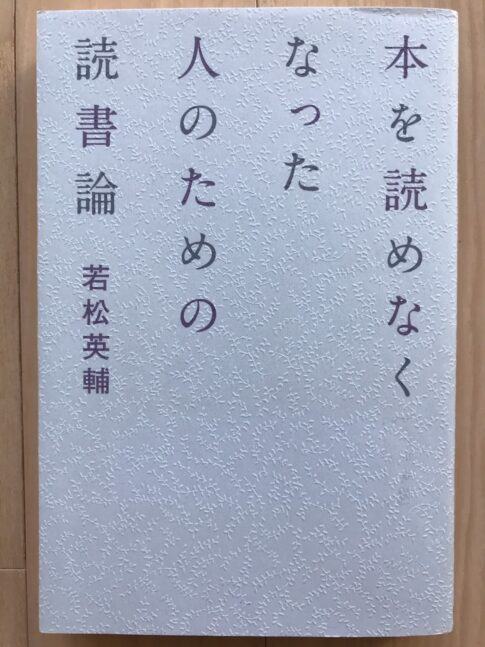 本を読めなく
なった
人のための
読書論
若松英輔